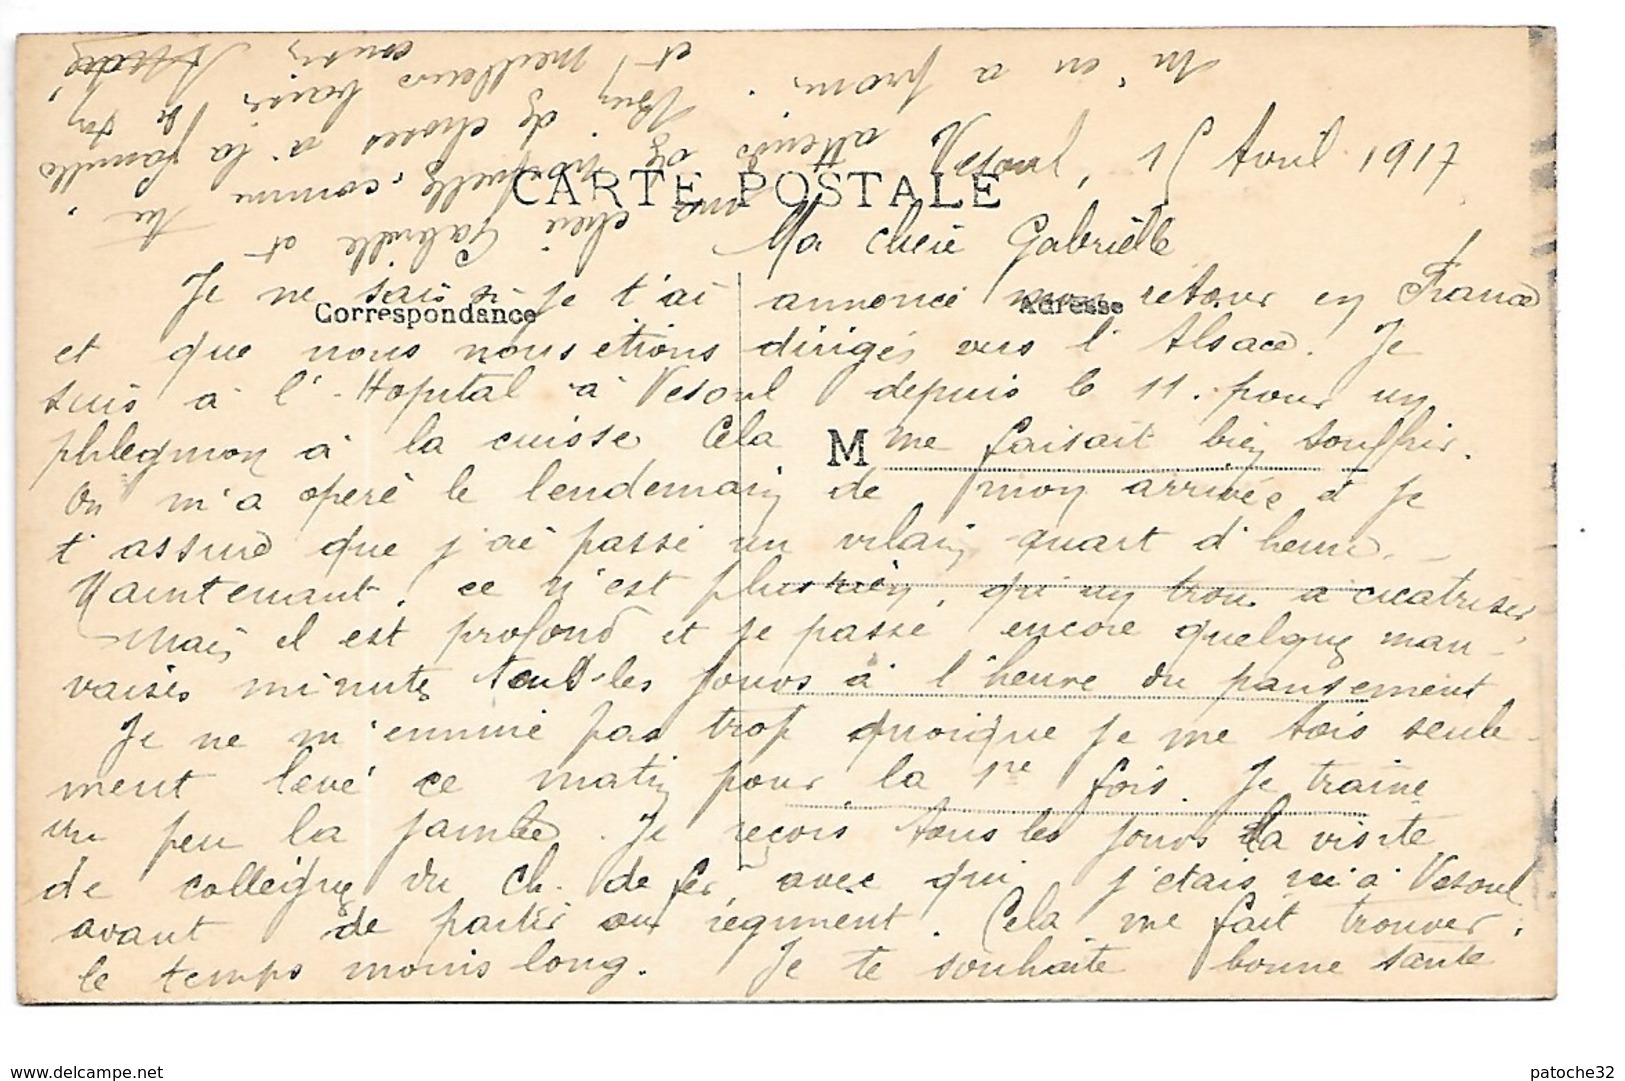 CARTE POSTALE
Correspondance
Adresse
M
Vesoul, 15 Avril 1917
Ma chère Gabrielle
Je ne sais si je t'ai annoncé mon retour en France
et que nous nous étions dirigés vers l'Alsace. Je
suis à l'Hopital à Vesoul depuis le 11. pour un
phlegmon à la cuisse. Cela me faisait bien souffrir.
On m'a opéré le lendemain de mon arrivée et je
t'assure que j'ai passé un vilain quart d'heure. -
Maintenant, ce n'est plus rien, qu'un trou à cicatriser,
Mais il est profond et je passe encore quelques mau-
vaises minutes tous les jours à l'heure du pansement
Je ne m'ennuie pas trop quoique je me sois seule-
ment levé ce matin pour la 1re fois. Je traine
un peu la jambe. Je reçois tous les jours la visite
de collègues du Ch. de fer avec qui j'étais ici à Vesoul
avant de partir au régiment. Cela me fait trouver
le temps moins long. Je te souhaite bonne santé
ma chère Gabrielle et
attends de nouvelles, comme tu
m'en a prom.
Bien de choses à la famille
et meilleurs baisers de ton
cousin